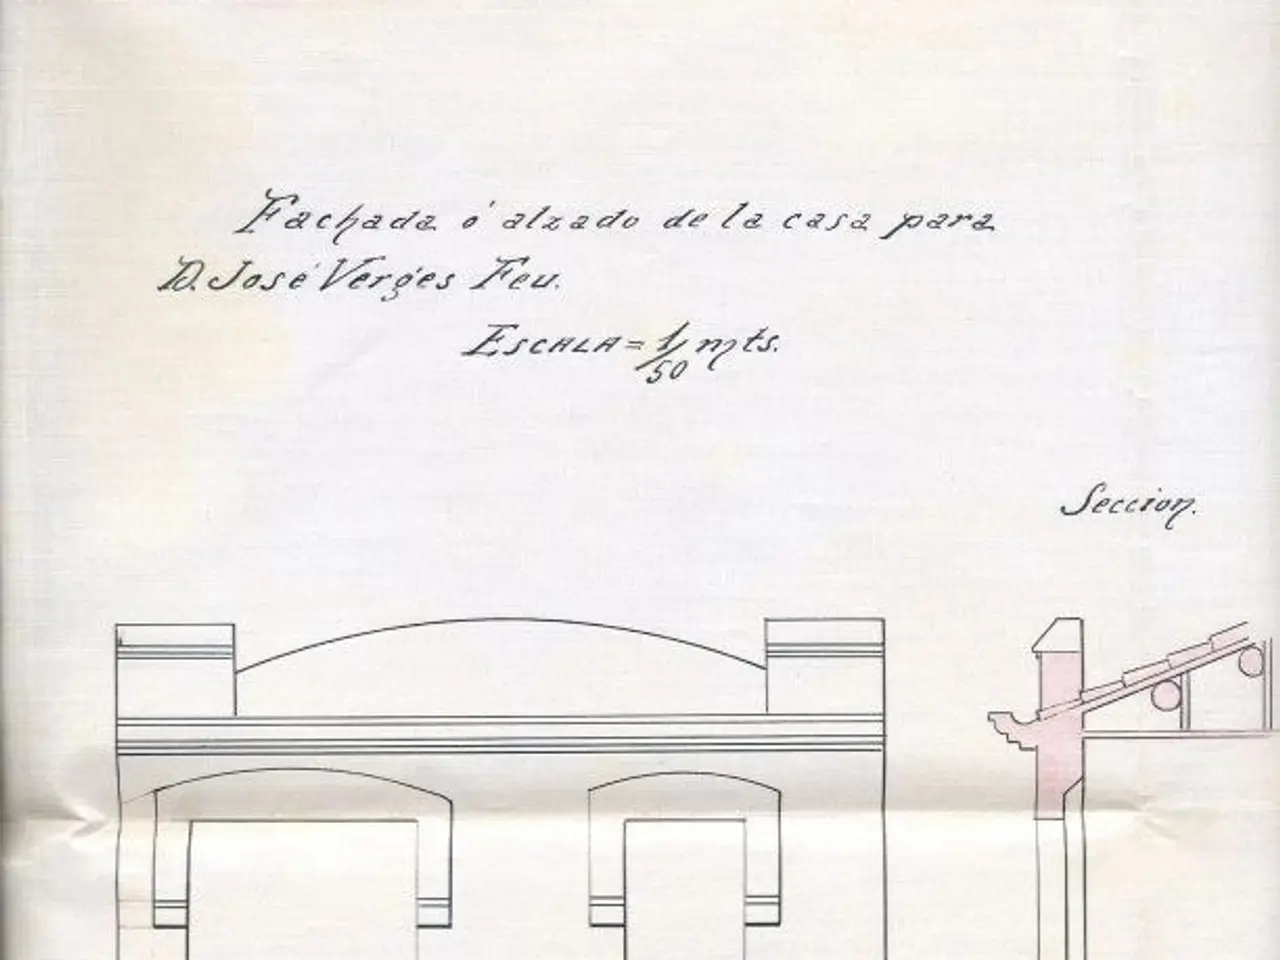 Fachada ó alzado de la casa para
D. José Vergés Feu.
ESCALA = 1/50 mts.
Seccion.